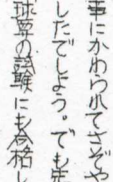 事にかわられてさぞや
したでしょう。でも
珠算の試験にも合格し